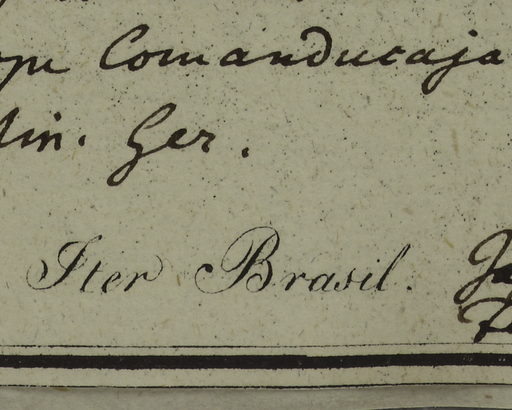 Comanducaja
Min. Ger.
Iter Brasil.